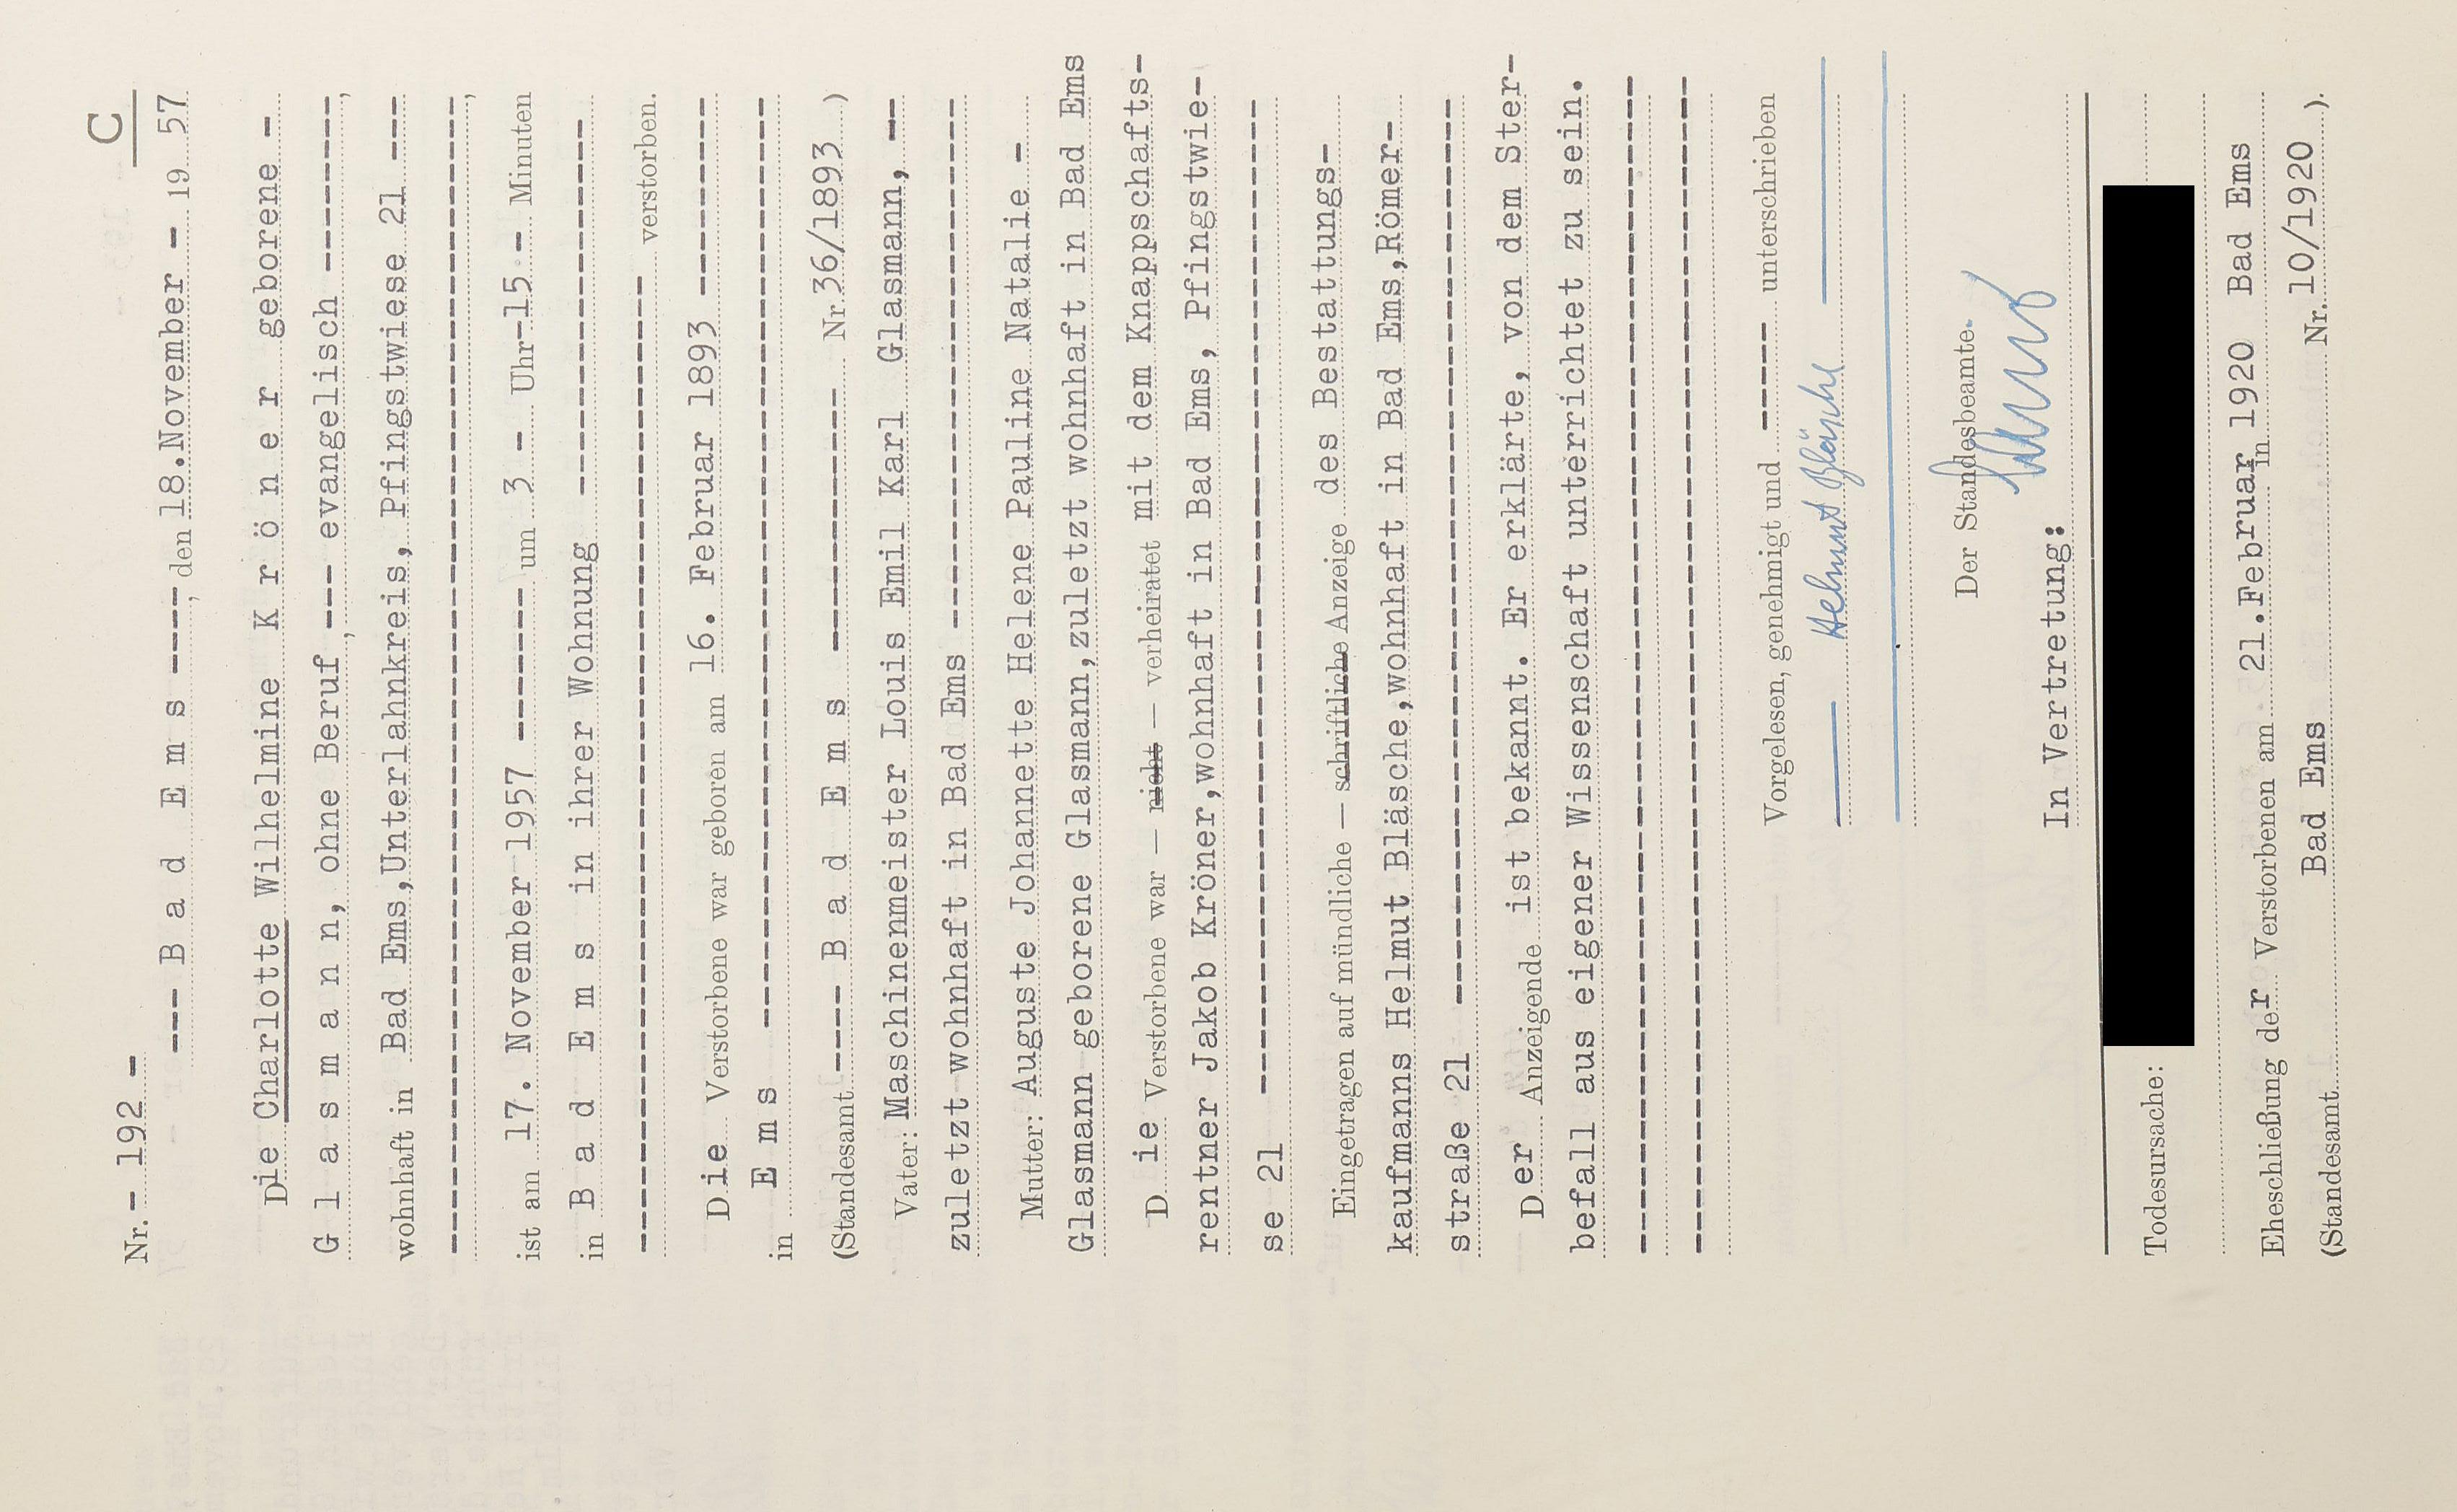 C
Nr. - 192 -
--- B a d E m s ----, den 18.November - 19 57
Die Charlotte Wilhelmine K r ö n e r geborene -
G l a s m a n n, ohne Beruf, --- evangelisch -------,
wohnhaft in Bad Ems,Unterlahnkreis, Pfingstwiese 21 ---
--------------------------------------------------,
ist am 17. November 1957 ------- um 3 - Uhr 15 - Minuten
in B a d E m s in ihrer Wohnung -----------------
------------------------------------------ verstorben.
Die Verstorbene war geboren am 16. Februar 1893 ---------
in E m s -----------------------------------------
(Standesamt ---- B a d E m s ----------- Nr.36/1893 )
Vater: Maschinenmeister Louis Emil Karl Glasmann, --
zuletzt wohnhaft in Bad Ems -----------------------
Mutter: Auguste Johannette Helene Pauline Natalie -
Glasmann geborene Glasmann,zuletzt wohnhaft in Bad Ems
Die Verstorbene war — nicht — verheiratet mit dem Knappschafts-
rentner Jakob Kröner,wohnhaft in Bad Ems, Pfingstwie-
se 21 -------------------------------------------
Eingetragen auf mündliche — schriftliche Anzeige des Bestattungs-
kaufmanns Helmut Bläsche,wohnhaft in Bad Ems,Römer-
straße 21 ---------------------------------------
Der Anzeigende ist bekannt. Er erklärte, von dem Ster-
befall aus eigener Wissenschaft unterrichtet zu sein.
---------------------------------------------------
---------------------------------------------------
Vorgelesen, genehmigt und ----- unterschrieben
Helmut Bläsche
Der Standesbeamte.
In Vertretung:
Todesursache:
Eheschließung der Verstorbenen am 21.Februar 1920 in Bad Ems
(Standesamt Bad Ems Nr. 10/1920 ).